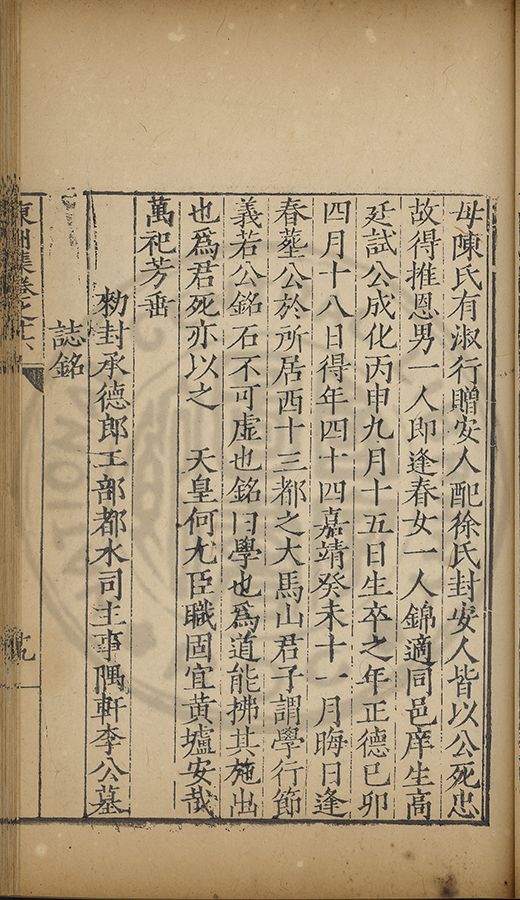 母陳氏有淑行贈安人配徐氏封安人皆以公死忠
故得推恩男一人即逢春女一人錦適同邑庠生高
廷試公成化丙申九月十五日生卒之年正德已卯
四月十八日得年四十四嘉靖癸未十一月晦日逢
春塟公於所居西十三都之大馬山君子謂學行節
義若公銘石不可虛也銘曰學也爲道能拂其施出
也爲君死亦以之 天皇何尤臣職固宜黃壚安哉
萬祀芳垂
勑封承德郎工部都水司主事隅軒李公墓
誌銘
東洲集卷之十六